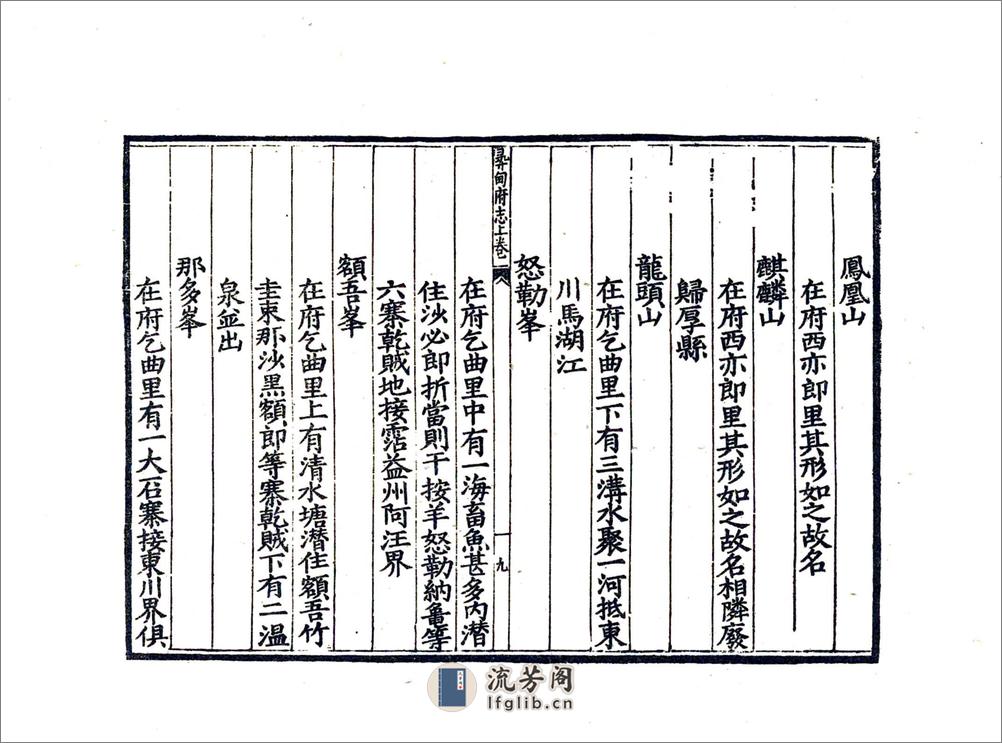 鳳凰山
在府西亦即里其形如之故名
麒麟山
在府西亦即里其形如之故名相隣廢
歸厚縣
龍頭山
在府乞曲里下有三溝水聚一河抵東
川馬湖江
怒勒峯
尋甸府志上卷
九
在府乞曲里中有一海畜魚甚多内潜
住沙必即折當則干按羊怒勒納黽等
六寨乾賊地接霑益州阿汪界
額吾峯
在府乞曲里上有清水塘潜住額吾竹
圭束那沙黑額即等寨乾賊下有二温
泉並出
那多峯
在府乞曲里有一大石寨接東川界俱
流芳阁
lfglib.cn